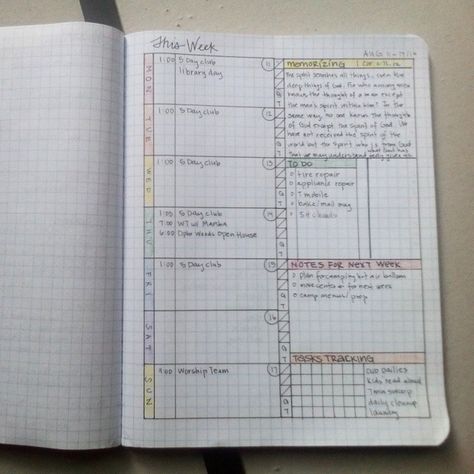 This Week
AUG 11-17/14
MON
1:00 5 Day club
library day
11
TUE
1:00 5 Day club
12
WED
1:00 5 Day club
13
THU
1:00 5 Day club
7:00 WT w/ Marsha
6:00 Open House
14
FRI
1:00 5 Day club
15
SAT
16
SUN
9:00 Worship Team
17
G
T
MEMORIZING
The spirit searches all things, even the
deep things of God. For who among men
knows the thought of a man except
the man's spirit within him? In the
same way, no one knows the thoughts
of God except the Spirit of God. We
have not received the spirit of the
world but the Spirit who is from God
that we may understand what God has freely given us
TO DO
o tire repair
o appliance repair
o T mobile
o bake/mail may
o
NOTES FOR NEXT WEEK
o plan for camping hot air balloon
o for next week
o camp menus/prep
TASKS TRACKING
dailies
kids read aloud
daily cleanup
laundry